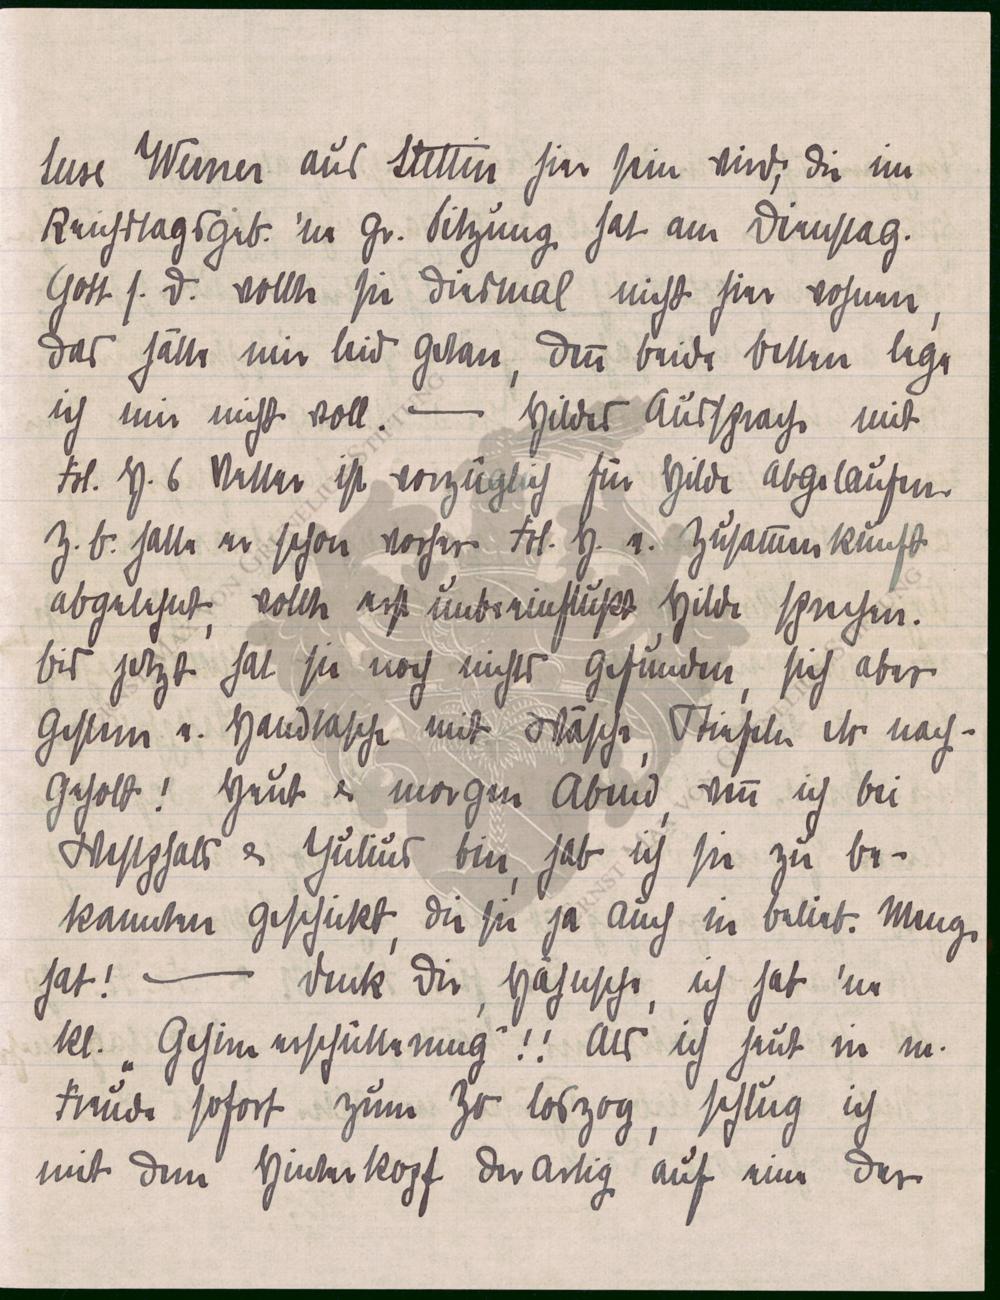 Luse Werner aus Stettin hier sein wird, die im
Reichstagsgeb. 'ne gr. Sitzung hat am Dienstag.
Gott s. D. wollte sie diesmal nicht hier wohnen,
das hätte mir leid getan, denn beide Betten lege
ich mir nicht voll. — Hildes Aussprache mit
Frl. H.s Vetter ist vorzüglich für Hilde abgelaufen.
Z. B. hatte er schon vorher Frl. H. e. Zusammenkunft
abgelehnt, wollte erst unbeeinflußt Hilde sprechen.
Bis jetzt hat sie noch nichts gefunden, sich aber
gestern e. Handtasche mit Wäsche, Stiefeln etc nach-
geholt! Heut & morgen Abend, wenn ich bei
Westphals & Julius bin, hab ich sie zu Be-
kannten geschickt, die sie ja auch in belieb. Menge
hat! — Denk Dir, Hähnsche, ich hab 'ne
kl. „Gehirnerschütterung"!! Als ich heut in m.
Freude sofort zum Zo loszog, schlug ich
mit dem Hinterkopf derartig auf eine der